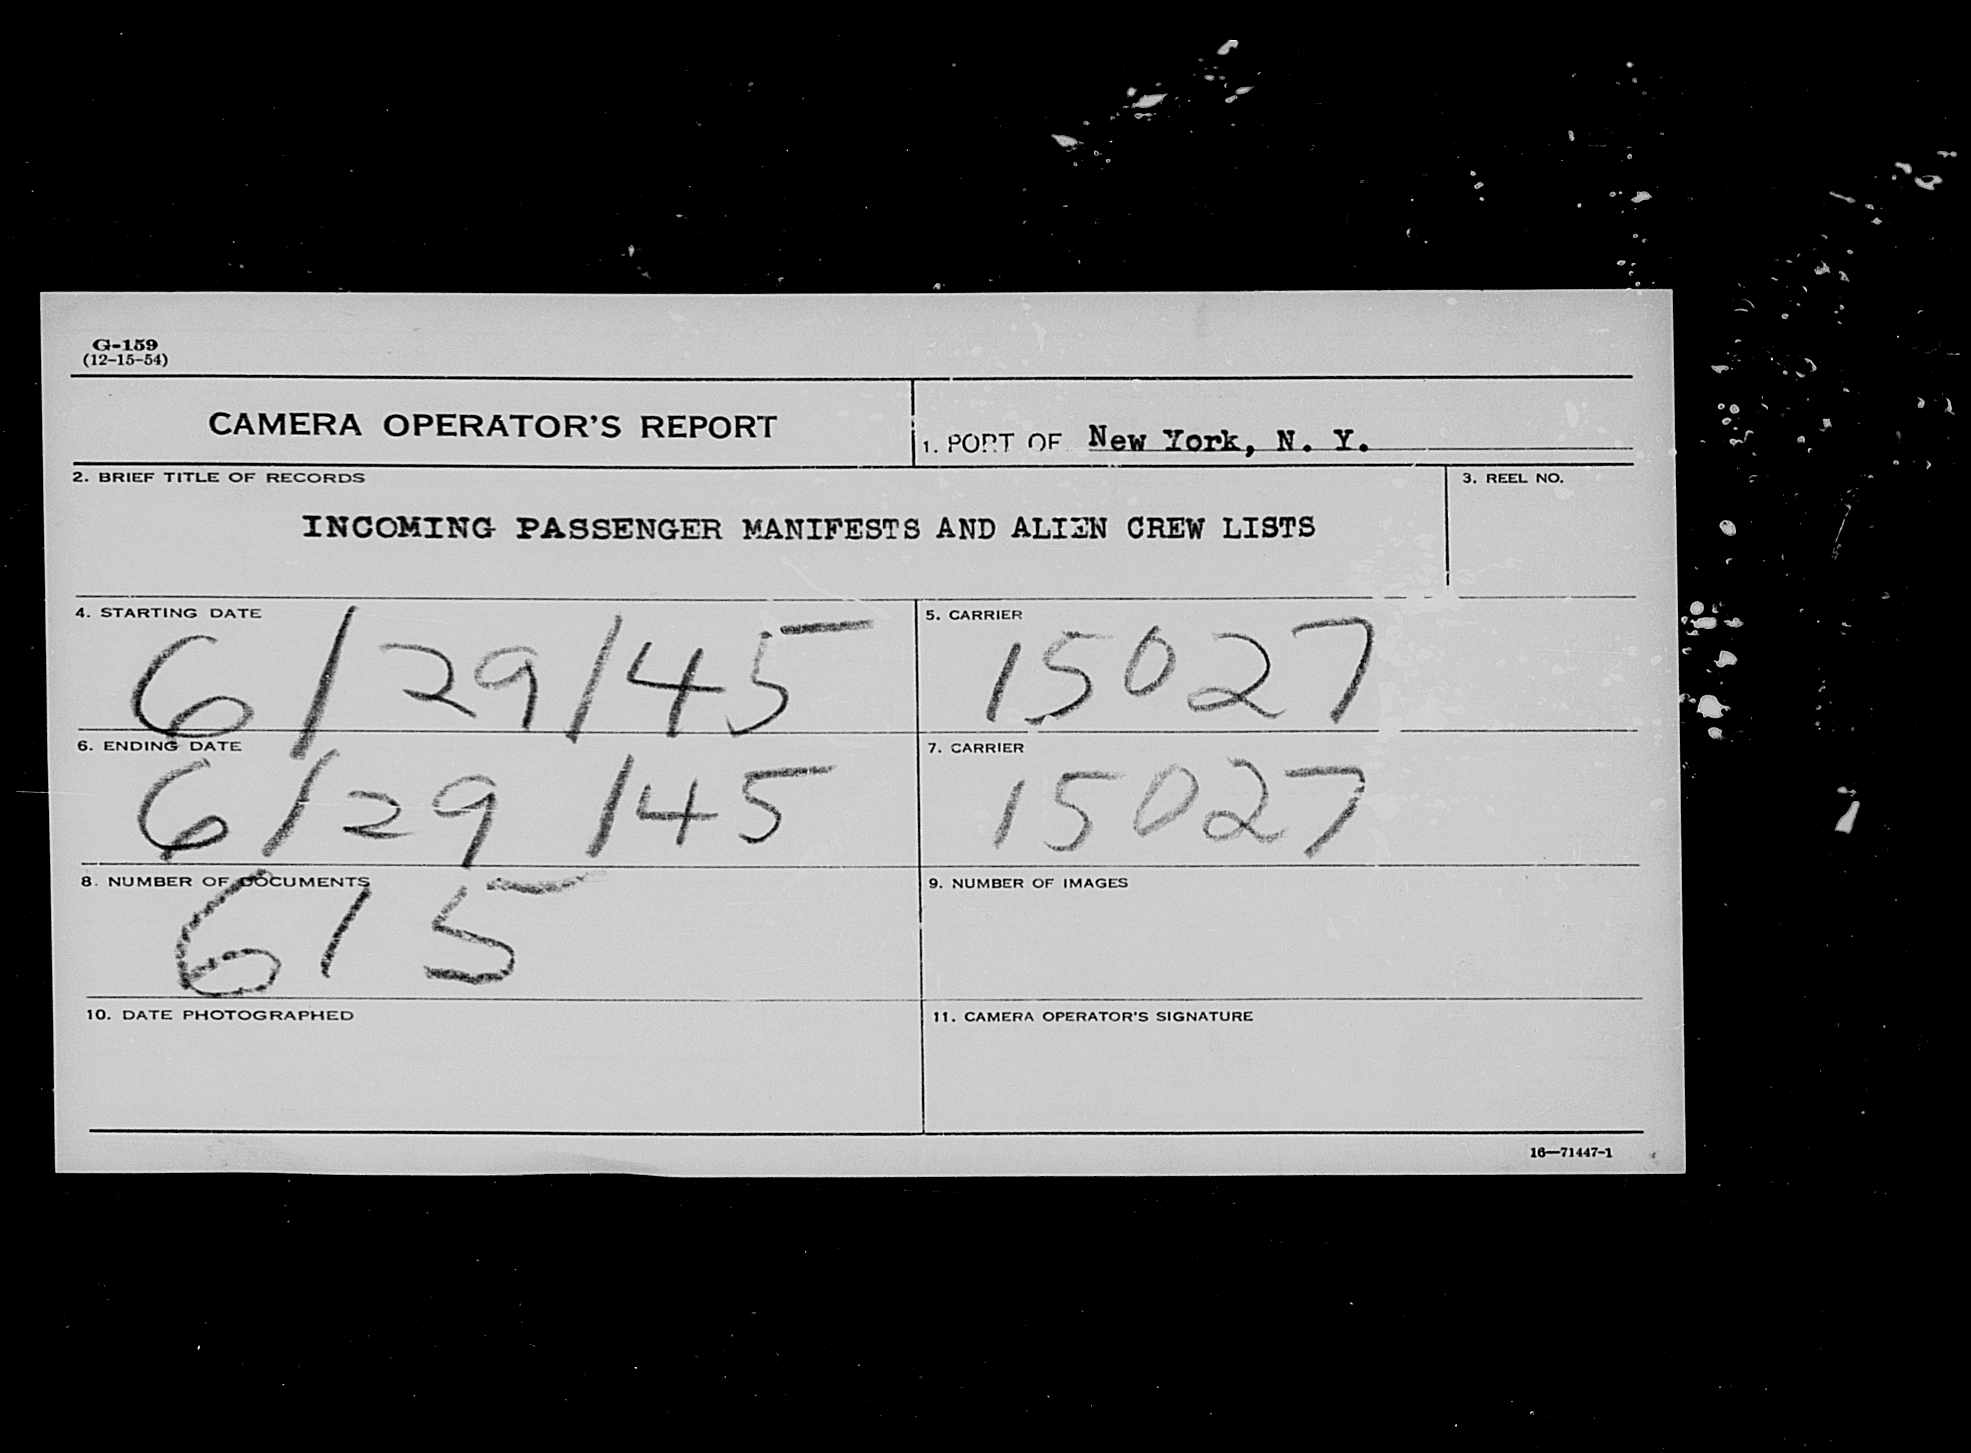 G-159
(12-15-54)
CAMERA OPERATOR'S REPORT
1. PORT OF New York, N. Y.
2. BRIEF TITLE OF RECORDS
3. REEL NO.
INCOMING PASSENGER MANIFESTS AND ALIEN CREW LISTS
4. STARTING DATE
6/29/45
5. CARRIER
15027
6. ENDING DATE
6/29/45
7. CARRIER
15027
8. NUMBER OF DOCUMENTS
615
9. NUMBER OF IMAGES
10. DATE PHOTOGRAPHED
11. CAMERA OPERATOR'S SIGNATURE
16—71447-1